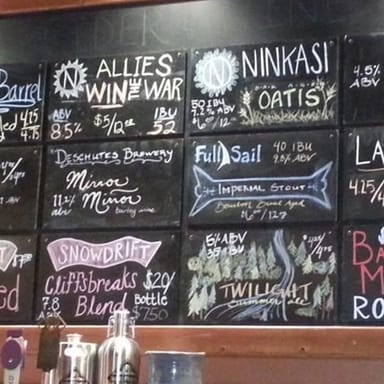 Barrel
4.75
N
ALLIES
WIN THE WAR
ABV
8.5%
$5/12oz
IBU
52
NINKASI
50 IBU
7.2% ABV
OATIS
4.5%
ABV
DESCHUTES BREWERY
Mirror
Mirror
11.2%
abv
barley wine
Full Sail
40 IBU
9.8% ABV
IMPERIAL STOUT
Bourbon Barrel Aged
LA
SNOWDRIFT
Cliffsbreaks
Blend
7.8
$20/
Bottle
$750
5% ABV
35 IBU
TWILIGHT
Summer ale
BA
M
RO